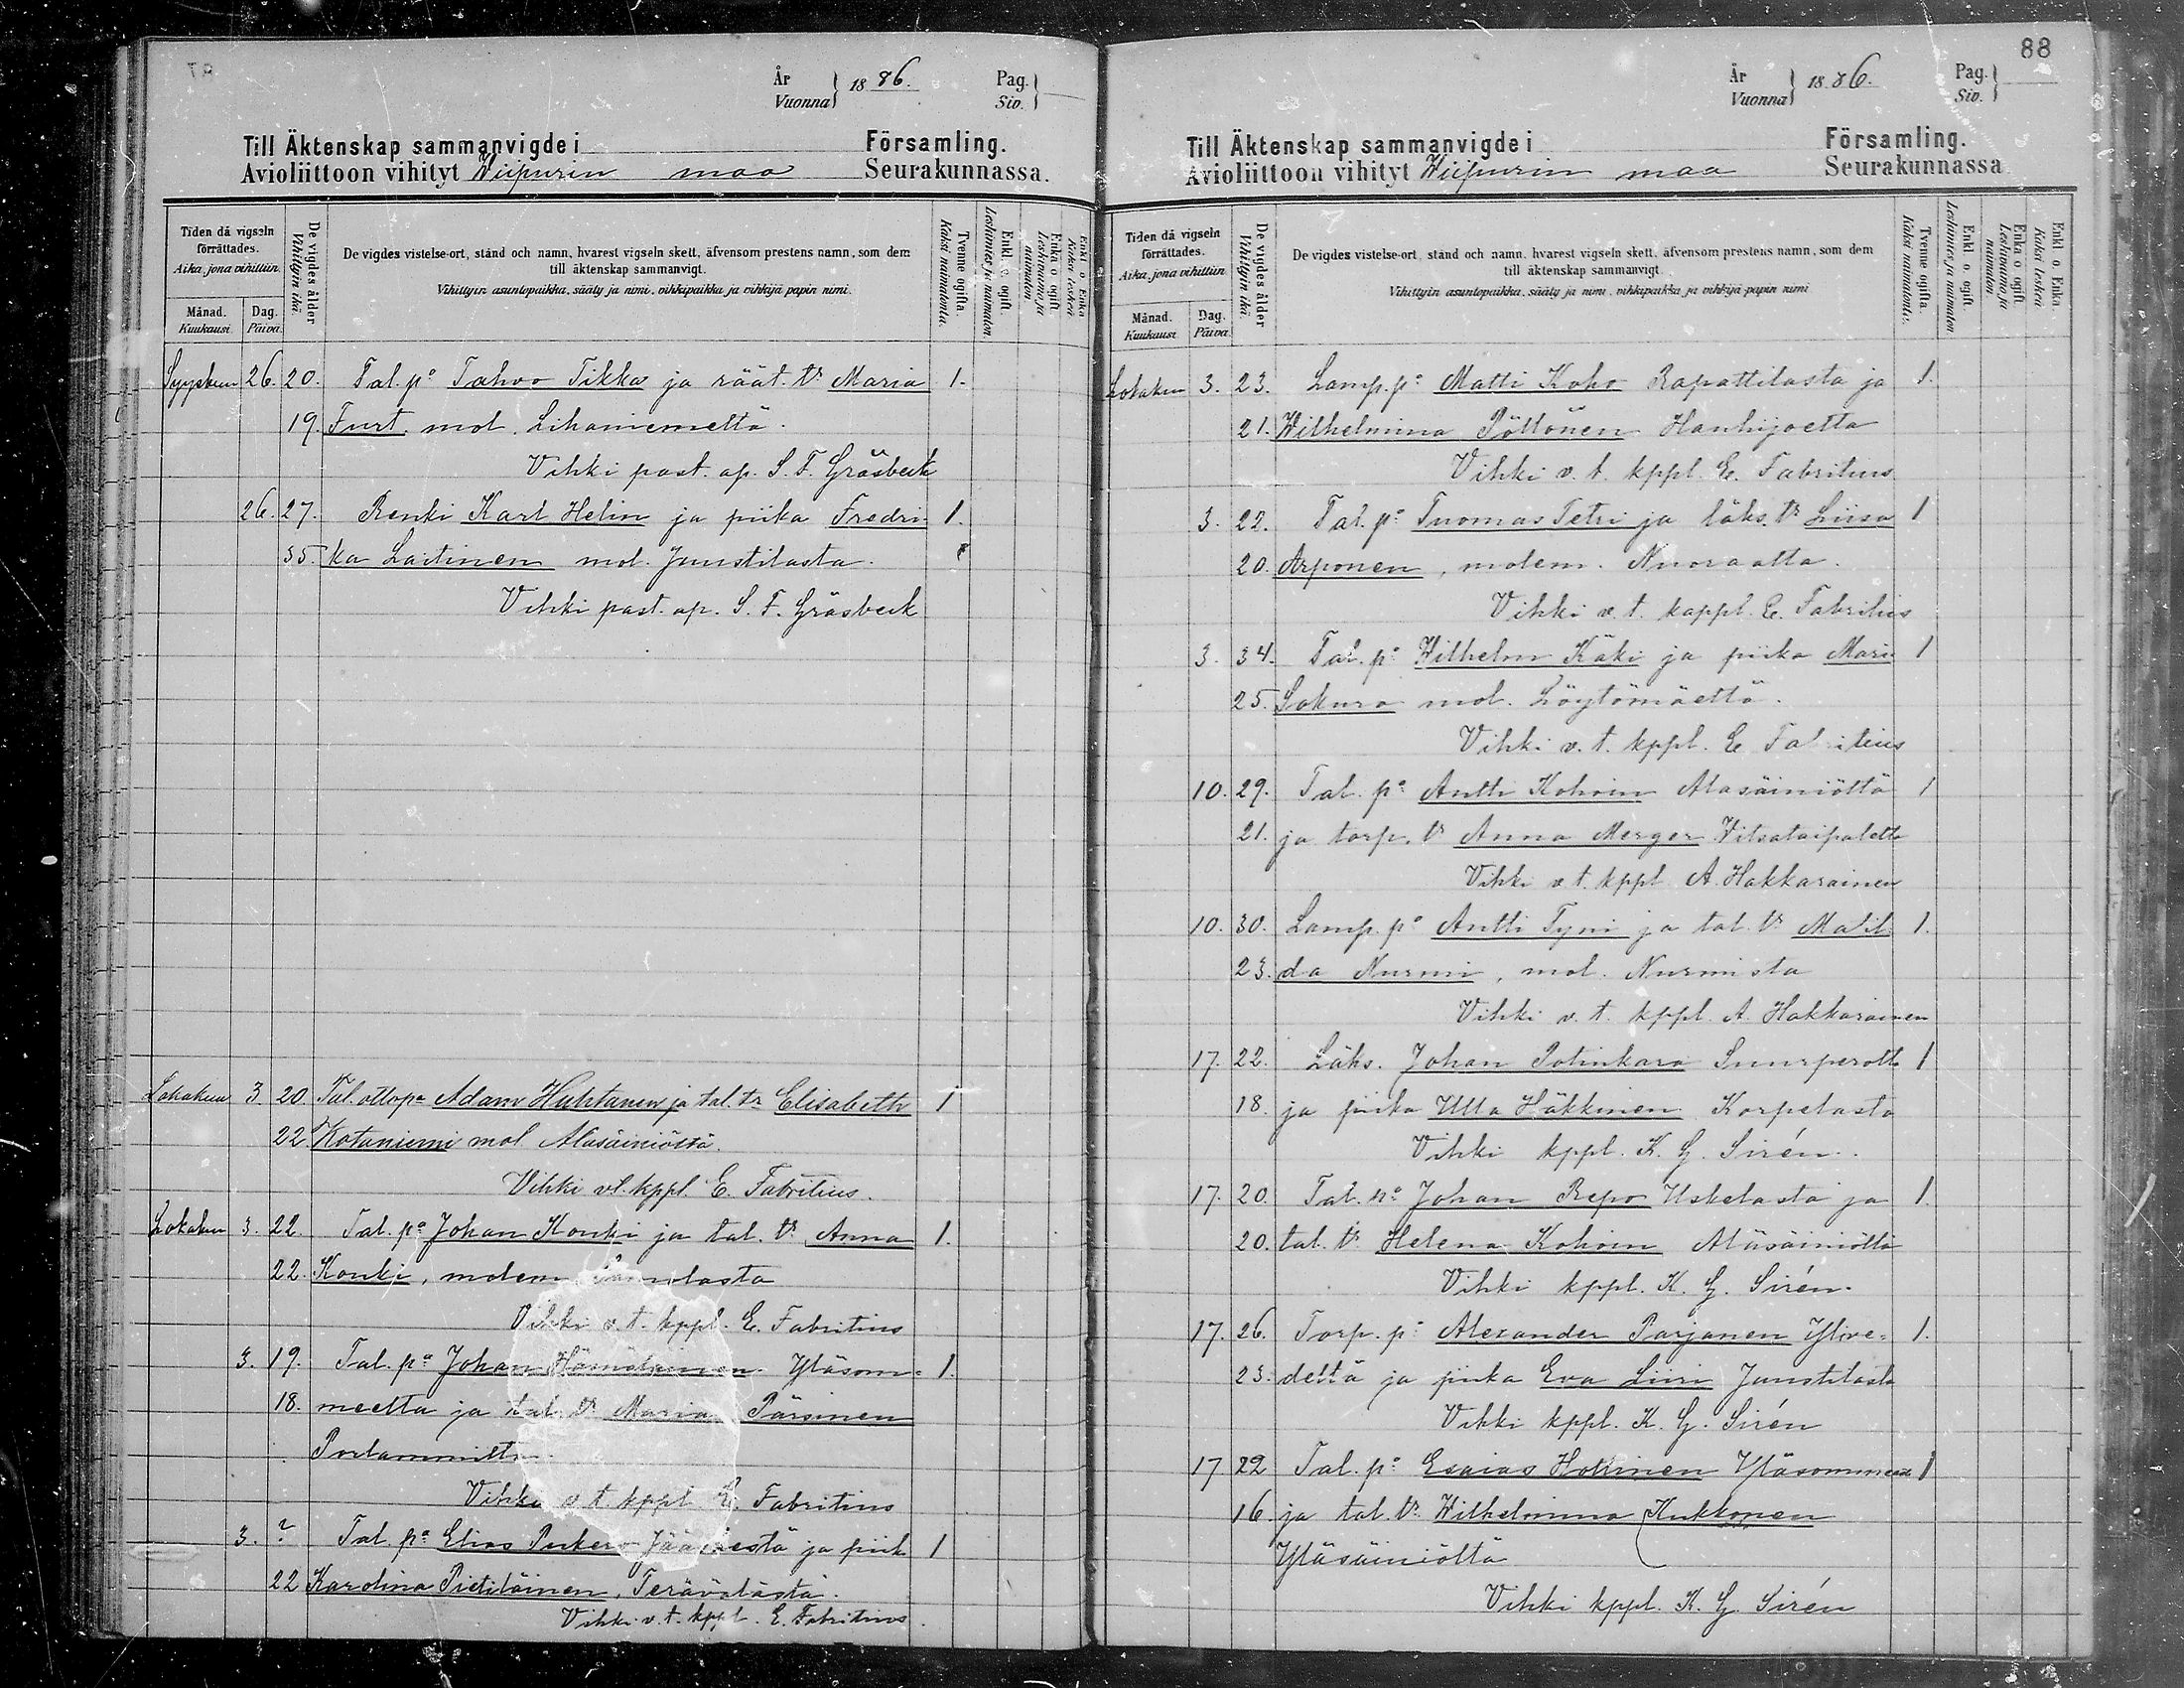 År
Vuonna
1886.
Pag.
Siv.
Till Äktenskap sammanvigde i Församling.
Avioliittoon vihityt Wiipurin maa Seurakunnassa.
Tiden då vigseln förrättades.
Aika, jona vihittiin
Månad.
Kuukausi
Dag.
Päivä.
De vigdes ålder
Vihittyin ikä.
De vigdes vistelse-ort, stånd och namn, hvarest vigseln skett, äfvensom prestens namn, som dem
till äktenskap sammanvigt.
Vihittyin asuntopaikka, sääty ja nimi, vihkipaikka ja vihkijä papin nimi.
Tvenne ogifta.
Kaksi naimatonta.
Enkl. o. ogift.
Leskimies ja naimaton.
Enka o. ogift.
Leskivaimo ja naimaton
Enkl. o. Enka
Kaksi leskeä
Syyskuu 26. 20. Tal. po Tahvo Tikka ja räät. tr Maria 1.
19. Furt, mol. Lihaniemeltä.
Vihki past. ap. S. F. Gräsbeck
26. 27. Renki Karl Helin ja piika Fredri- 1.
35. ka Laitinen mol. Juustilasta.
Vihki past. ap. S. F. Gräsbeck
Lokakuu 3. 20. Tal. ottopa Adam Huhtanen ja tal. tr Elisabeth 1
22. Kotaniemi mol Alasäiniöltä.
Vihki vt. kppl. E. Fabritius.
Lokakuu 3. 22. Tal. po Johan Konki ja tal. tr Anna 1.
22. Konki, molem
Vihki v. t. kppl. E. Fabritius
3. 19. Tal. po Johan Hämäläinen Yläsom- 1.
18. meelta ja tal. tr Maria Pärsinen
Porlammilta
Vihki v. t. kppl. E. Fabritius
3. ? Tal. po Elias Jääskestä ja piik 1
22 Karolina Pietiläinen, Terävälästä.
Vihki v. t. kppl. E. Fabritius.
88
År
Vuonna
1886.
Pag.
Siv.
Till Äktenskap sammanvigde i Församling.
Avioliittoon vihityt Wiipurin maa Seurakunnassa
Tiden då vigseln förrättades.
Aika, jona vihittiin
Månad.
Kuukausi
Dag.
Päivä.
De vigdes ålder
Vihittyin ikä.
De vigdes vistelse-ort, stånd och namn, hvarest vigseln skett, äfvensom prestens namn, som dem
till äktenskap sammanvigt.
Vihittyin asuntopaikka, sääty ja nimi, vihkipaikka ja vihkijä papin nimi
Tvenne ogifta.
Kaksi naimatonta.
Enkl. o. ogift.
Leskimies ja naimaton
Enka o. ogift.
Leskivaimo ja naimaton.
Enkl. o. Enka.
Kaksi leskeä
Lokakuu 3. 23. Lamp. po Matti Koho Rapattilasta ja 1.
21. Wilhelmina Pöllönen Hanhijoelta
Vihki v. t. kppl. E. Fabritius
3. 22. Tal. po Tuomas Tetri ja läks. tr Liisa 1
20. Arponen, molem. Nuoraalta.
Vihki v. t. kappl. E. Fabritius
3. 34. Tal. po Wilhelm Käki ja piika Mari 1
25. Sakura mol. Löytömäeltä.
Vihki v. t. kppl. E. Fabritius
10. 29. Tal. po Antti Kohoin Alasäiniöltä 1
21. ja torp. tr Anna Merger Vilsataipalelta
Vihki v. t. kppl A. Hakkarainen
10. 30. Lamp. po Antti Tyni ja tal. tr Matil 1.
23. da Nurmi, mol. Nurmista
Vihki v. t. kppl. A. Hakkarainen
17. 22. Läks. Johan Potinkara Suurperolta 1
18. ja piika Ulla Häkkinen Korpelasta
Vihki kppl. K. G. Sirén.
17. 20. Tal. po Johan Repo Uskelasta ja 1.
20. tal. tr Helena Kohoin Alasäiniöltä
Vihki kppl. K. G. Sirén.
17. 26. Torp. po Alexander Parjanen Ylive= 1.
23. deltä ja piika Eva Liiri Juustilasta
Vihki kppl. K. G. Sirén
17 22 Tal. po Esaias Yläsommeelta 1
16. ja tal. tr Wilhelmina Kukkonen
Yläsäiniöltä
Vihki kppl. K. G. Sirén